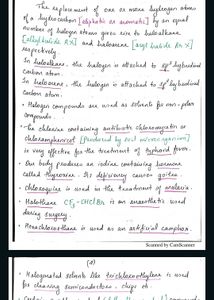 The replacement of one or more hydrogen atoms
of a hydrocarbon [aliphatic or aromatic] by an equal
number of halogen atoms gives rise to haloalkane
[alkyl halide R-X] and haloarene [aryl halide Ar-X]
respectively.
In haloalkane, the halogen is attached to sp³ hybridised
carbon atom.
In haloarene, the halogen is attached to sp² hybridised
carbon atom.
• Halogen compounds are used as solvents for non-polar
compounds.
• The chlorine containing antibiotic chloromycetin or
chloramphenicol [Produced by soil microorganism]
is very effective for the treatment of typhoid fever.
• Our body produces an iodine containing hormone
called thyroxine. Its deficiency causes goitre.
• Chloroquine is used in the treatment of malaria.
• Halothane CF₃-CHClBr is an anaesthetic used
during surgery.
• Hexachloroethane is used as an artificial camphor.
Scanned by CamScanner
(2)
• Halogenated solvents like trichloroethylene is used
for cleaning semiconductors, chips etc.